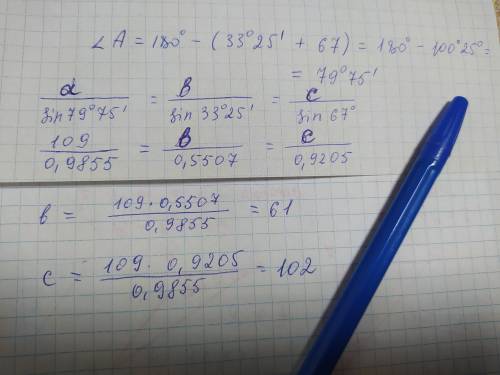 ∠A = 180° − (33°25' + 67) = 180° − 100°25° =
= 79°75'
a/sin79°75' = в/sin 33°25' = c/sin 67°
109/0,9855 = в/0,5507 = c/0,9205
в = 109·0,5507/0,9855 = 61
c = 109·0,9205/0,9855 = 102